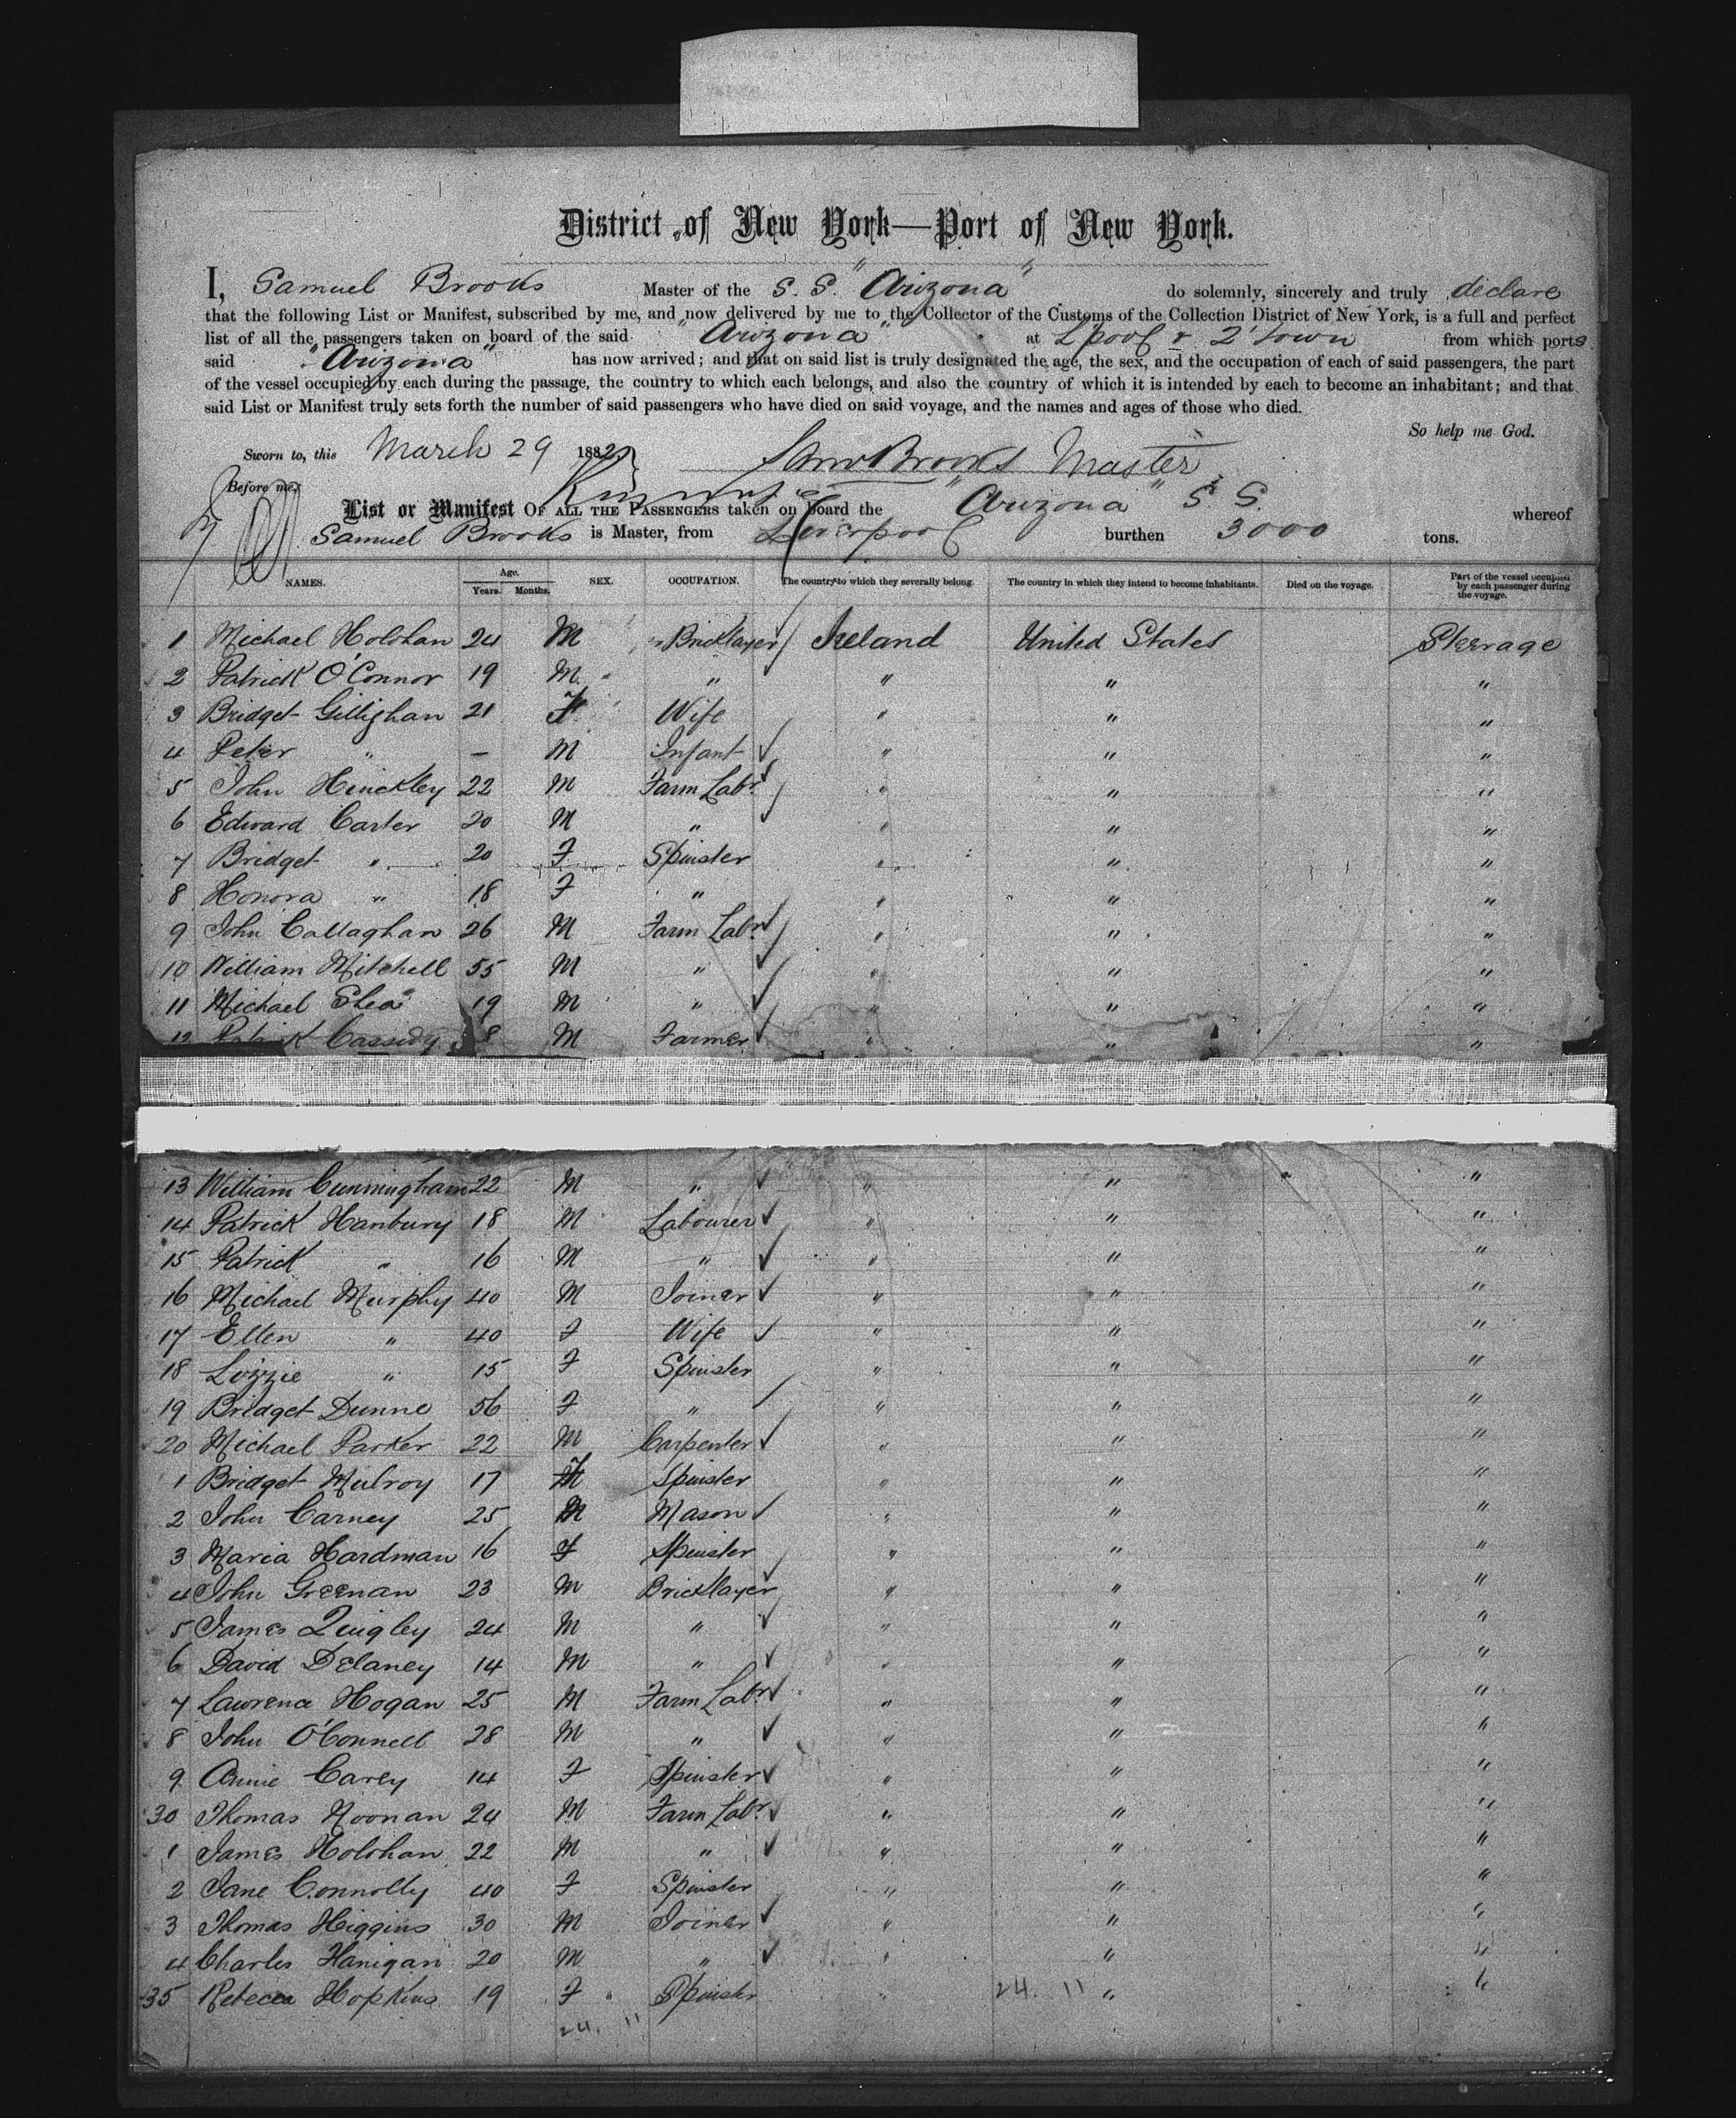 District of New York—Port of New York.
I, Samuel Brooks Master of the S. S. "Arizona" do solemnly, sincerely and truly declare
that the following List or Manifest, subscribed by me, and now delivered by me to the Collector of the Customs of the Collection District of New York, is a full and perfect
list of all the passengers taken on board of the said "Arizona" at L'pool & Q'town from which ports
said "Arizona" has now arrived; and that on said list is truly designated the age, the sex, and the occupation of each of said passengers, the part
of the vessel occupied by each during the passage, the country to which each belongs, and also the country of which it is intended by each to become an inhabitant; and that
said List or Manifest truly sets forth the number of said passengers who have died on said voyage, and the names and ages of those who died.
So help me God.
Sworn to, this March 29 1882 Saml Brooks Master
Before me,
List or Manifest OF ALL THE PASSENGERS taken on board the "Arizona" S. S. whereof
Samuel Brooks is Master, from Liverpool burthen 3000 tons.
NAMES. Age. Years. Months. SEX. OCCUPATION. The country to which they severally belong. The country in which they intend to become inhabitants. Died on the voyage. Part of the vessel occupied by each passenger during the voyage.
1 Michael Holohan 24 M Bricklayer Ireland United States Steerage
2 Patrick O'Connor 19 M " " " "
3 Bridget Gillighan 21 F Wife " " "
4 Peter " — M Infant " " "
5 John Hinckley 22 M Farm Labr. " " "
6 Edward Carter 20 M " " " "
7 Bridget " 20 F Spinster " " "
8 Honora " 18 F " " " "
9 John Callaghan 26 M Farm Labr. " " "
10 William Mitchell 55 M " " " "
11 Michael Shea 19 M " " " "
12 Patrick Cassidy 8 M Farmer " " "
13 William Cunningham 22 M " " " "
14 Patrick Hanbury 18 M Labourer " " "
15 Patrick " 16 M " " " "
16 Michael Murphy 40 M Joiner " " "
17 Ellen " 40 F Wife " " "
18 Lizzie " 15 F Spinster " " "
19 Bridget Dunne 56 F " " " "
20 Michael Parker 22 M Carpenter " " "
1 Bridget Mulroy 17 F Spinster " " "
2 John Carney 25 M Mason " " "
3 Maria Hardman 16 F Spinster " " "
4 John Greenan 23 M Bricklayer " " "
5 James Quigley 24 M " " " "
6 David Delaney 14 M " " " "
7 Lawrence Hogan 25 M Farm Labr. " " "
8 John O'Connell 28 M " " " "
9 Annie Carey 14 F Spinster " " "
30 Thomas Noonan 24 M Farm Labr. " " "
1 James Holohan 22 M " " " "
2 Jane Connolly 40 F Spinster " " "
3 Thomas Higgins 30 M Joiner " " "
4 Charles Hanigan 20 M " " " "
35 Rebecca Hopkins 19 F Spinster " 24. 11 " "
24. 11